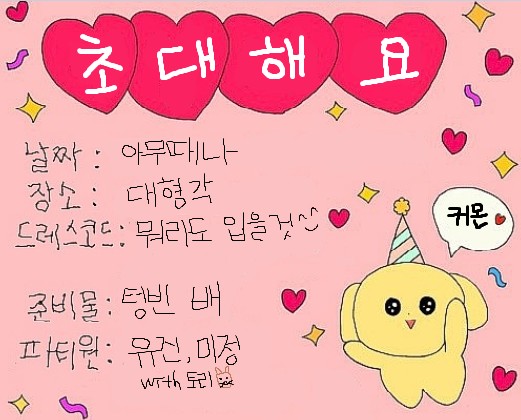 초대해요
날짜: 아무때나
장소: 대형각
드레스코드: 뭐라도 입을것^^
커몬
준비물: 텅빈 배
파티원: 유진, 미정
with 토리